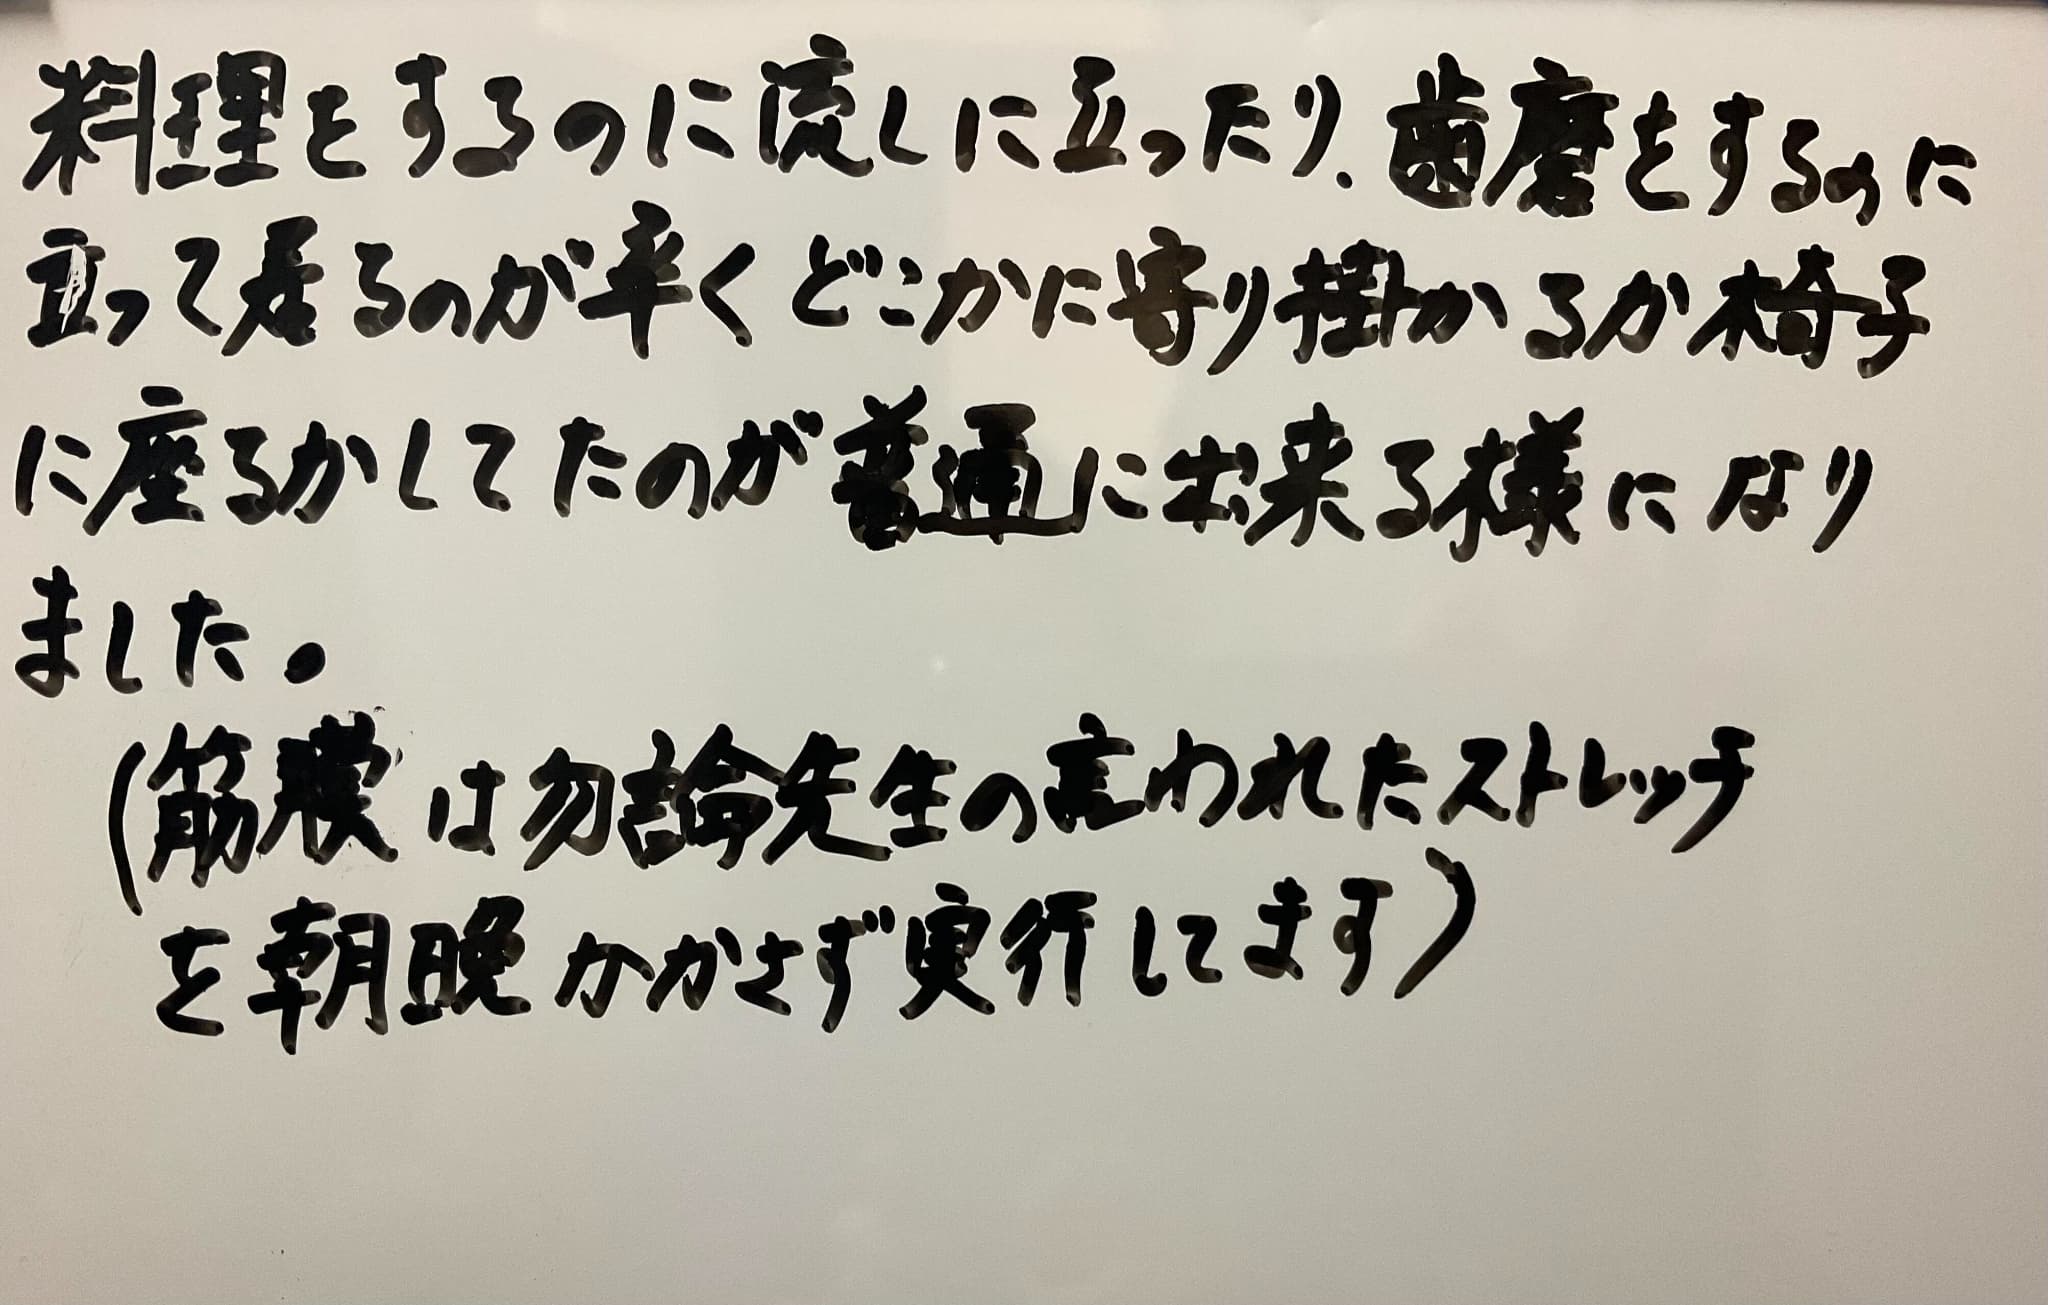 料理をするのに流しに立ったり、歯磨をするのに
立って居るのが辛くどこかに寄り掛かるか椅子
に座るかしてたのが普通に出来る様になり
ました。
(筋膜は勿論先生の言われたストレッチ
を朝晩かかさず実行してます)